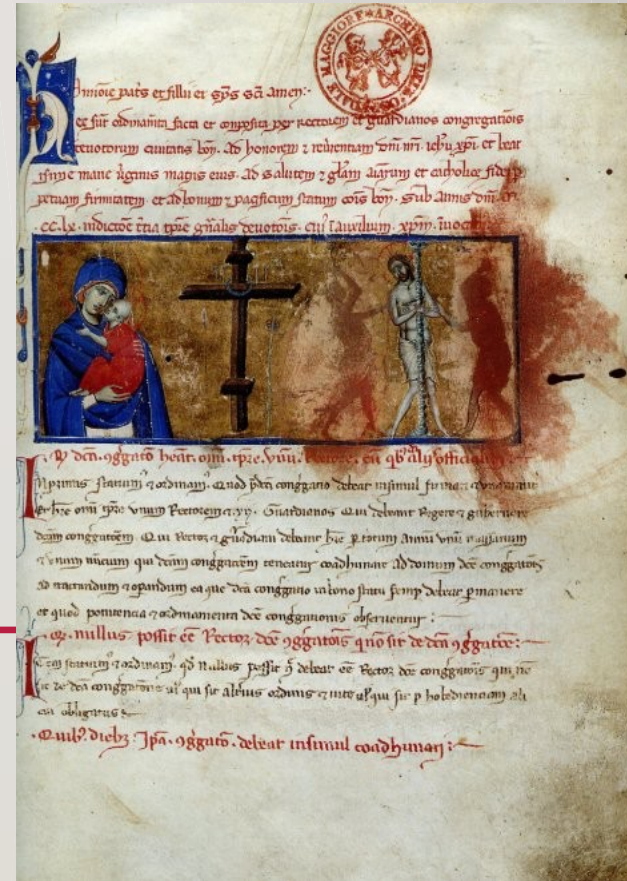 OSPEDALE MAGGIORE ★ ARCHIVIO DELL'
In noie pats et filii et sps sci amen:-
Hec sūt ordinamta facta et composita per rectorem et guardianos congregatiois
devotorum civitatis bon. Ad honorem ⁊ reverentiam dni nri. iehu xpi. et beat
issime marie virginis matris eius. Ad salutem ⁊ gliam aiarum et catholice fidei p
petuam firmitatem. et ad bonum ⁊ pacificum statum cois bon. Sub annis dni. M
CC.lx. indictoe tcia tpre gnalis devotois. cui auxilium. xpm. invoc
dca. 9ggato heat. omi. tpre. unu. Rectore. cu qb alijs officialib
In primis statum ⁊ ordinam. Quod pdca conggatio debeat insimul
et hre omi tpre unum Rectorem ⁊ Guardianos Qui debeant Regere ⁊ gubernare
dcam conggatoem. Qui Rector ⁊ guardiani debeant hre p totum annu unu massarium
⁊ unum nuncum qui dcam conggatoem teneatur coadhunare ad domum dce conggatois
ad tractandum ⁊ opandum ea que dca conggatio in bono statu semp debeat pmanere
et quod penitencia ⁊ ordinamenta dce conggationis observentur:
Q. nullus possit ee Rector dce 9ggatois q no sit de dca 9ggatoe:-
Item statum ⁊ ordinam. qd Nullus possit ul debeat ee Rector dce conggatois qui no
sit de dca conggatoe ul qui sit alterius ordinis ul qui sit p hobedienciam ali
cui obligatus
Quib. diebz. Ipa. 9ggato. debeat insimul coadhunari:-